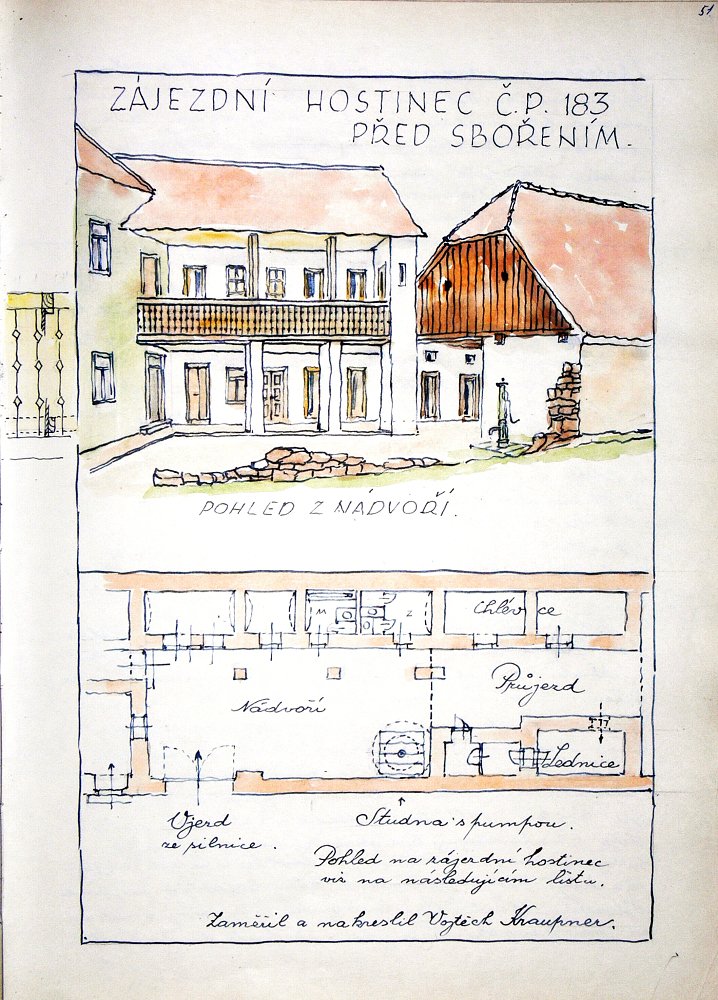 51
ZÁJEZDNÍ HOSTINEC Č.P. 183
PŘED SBOŘENÍM.
POHLED Z NÁDVOŘÍ.
M
Z
Chlévce
Průjezd
Nádvoří
Lednice
Vjezd
ze silnice.
Studna s pumpou.
Pohled na zájezdní hostinec
viz na následujícím listu.
Zaměřil a nakreslil Vojtěch Kraupner.